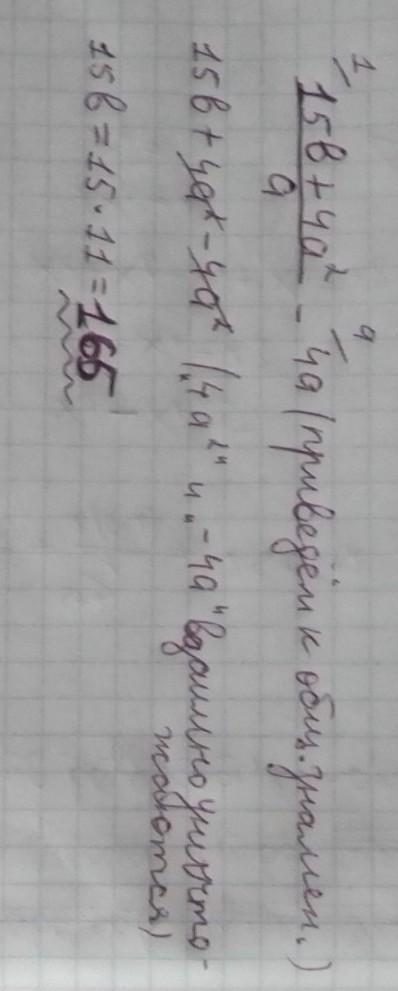 1 a
15b + 4a² - 4a (приведём к общ. знамен.)
a
15b + 4a² - 4a² („4a²" и „-4a" взаимно уничто-
жаются)
15b = 15 · 11 = 165